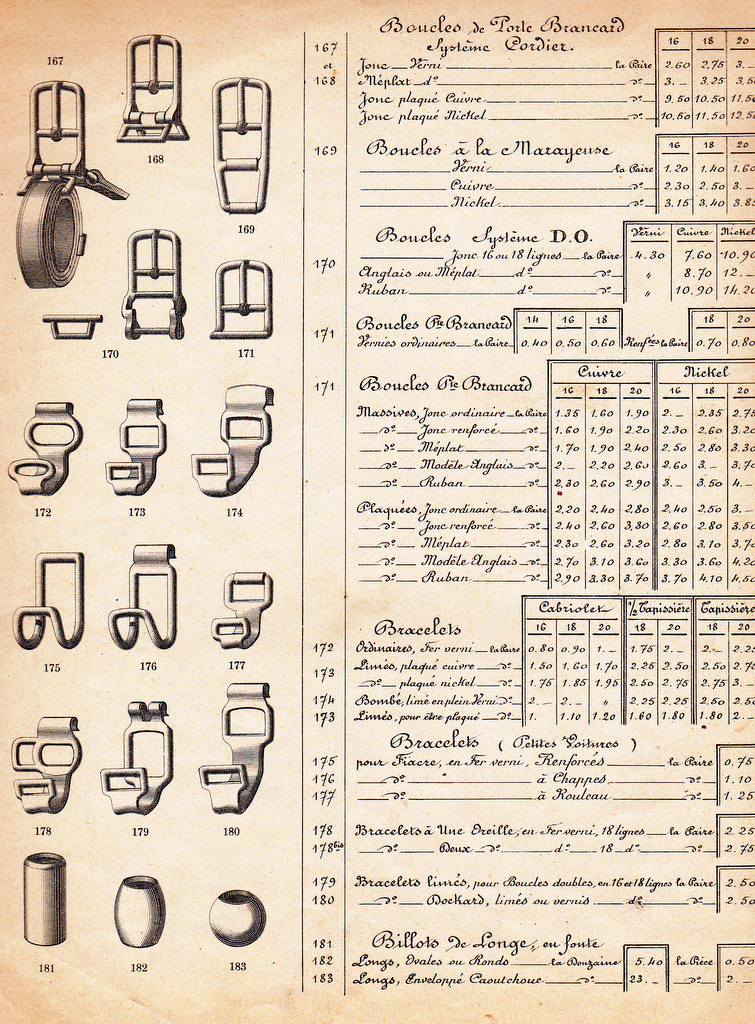 167
168
169
170
171
172
173
174
175
176
177
178
179
180
181
182
183
Boucles de Porte Brancard
Système Cordier. 16 18 20
167 Jonc Verni la Paire 2.60 2.75 3._
et
168 Méplat d° d° 3._ 3.25
Jonc plaqué Cuivre d° 9.50 10.50
Jonc plaqué Nickel d° 10.50 11.50
169 Boucles à la Marayeuse 16 18 20
Verni la Paire 1.20 1.40
Cuivre d° 2.30 2.50 3._
Nickel d° 3.15 3.40
Boucles Système D.O. Verni Cuivre Nickel
170 Jonc 16 ou 18 lignes la Paire 4.30 7.60
Anglais ou Méplat d° d° " 8.70
Ruban d° " 10.90
171 Boucles Pte Brancard 14 16 18 18 20
Vernies ordinaires la Paire 0.40 0.50 0.60 Renfées la Paire 0.70
Cuivre Nickel
171 Boucles Pte Brancard 16 18 20 16 18 20
Massives, Jonc ordinaire la Paire 1.35 1.60 1.90 2._ 2.35
d° Jonc renforcé d° 1.60 1.90 2.20 2.30 2.60
d° Méplat d° 1.70 1.90 2.40 2.50 2.80
d° Modèle Anglais d° 2._ 2.20 2.60 2.60 3._
d° Ruban d° 2.30 2.60 2.90 3._ 3.50 4._
Plaquées, Jonc ordinaire la Paire 2.20 2.40 2.80 2.40 2.50 3._
d° Jonc renforcé d° 2.40 2.60 3.30 2.60 2.80
d° Méplat d° 2.30 2.60 3.20 2.80 3.10
d° Modèle Anglais d° 2.70 3.10 3.60 3.30 3.60
d° Ruban d° 2.90 3.30 3.70 3.70 4.10
Cabriolet 1/2 Tapissière Tapissière
Bracelets 16 18 20 18 20 18 20
172 Ordinaires, Fer verni la Paire 0.80 0.90 1._ 1.75 2._ 2._
173 Limés, plaqué cuivre d° 1.50 1.60 1.70 2.25 2.50 2.50
d° plaqué nickel d° 1.75 1.85 1.95 2.50 2.75 2.75 3._
174 Bombé, limé en plein Verni d° 2._ 2._ " 2.25 2.25 2.50
173 Limés, pour être plaqué d° 1. 1.10 1.20 1.60 1.80 1.80 2._
Bracelets (Petites Voitures)
175 pour Fiacre, en Fer verni, Renforcés la Paire 0.75
176 d° à Chappes d° 1.10
177 d° à Rouleau d° 1.25
178 Bracelets à Une Oreille, en Fer verni, 18 lignes la Paire 2.25
178bis d° Deux d° d° 18 d° d° 2.75
179 Bracelets limés, pour Boucles doubles, en 16 et 18 lignes la Paire 2.50
180 d° Dockard, limés ou vernis d° d° 2.50
181 Billots de Longe, en fonte
182 Longs, Ovales ou Ronds la Douzaine 5.40 la Pièce 0.50
183 Longs, Enveloppé Caoutchouc d° 23._ d° 2._